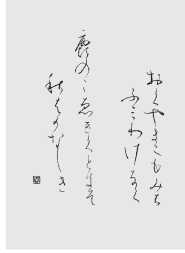 おくやまにもみち
ふみわけなく
鹿のこゑきくときそ
秋はかなしき